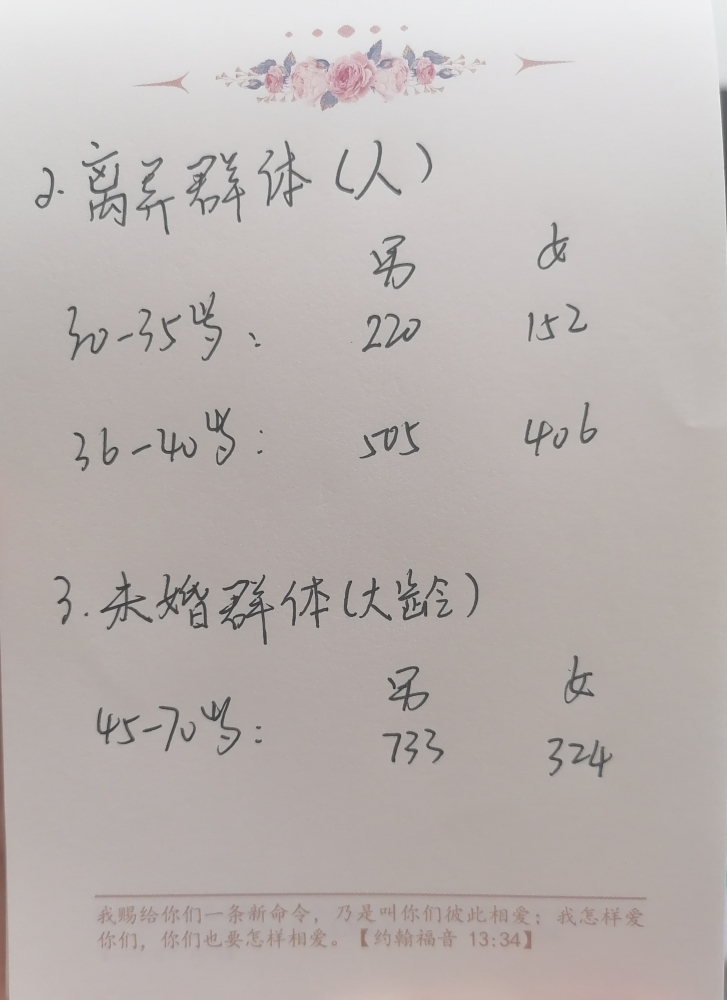 2.离异群体(人)
男 女
30-35岁: 220 152
36-40岁: 505 406
3.未婚群体(大龄)
男 女
45-70岁: 733 324
我赐给你们一条新命令，乃是叫你们彼此相爱；我怎样爱
你们，你们也要怎样相爱。【约翰福音 13:34】